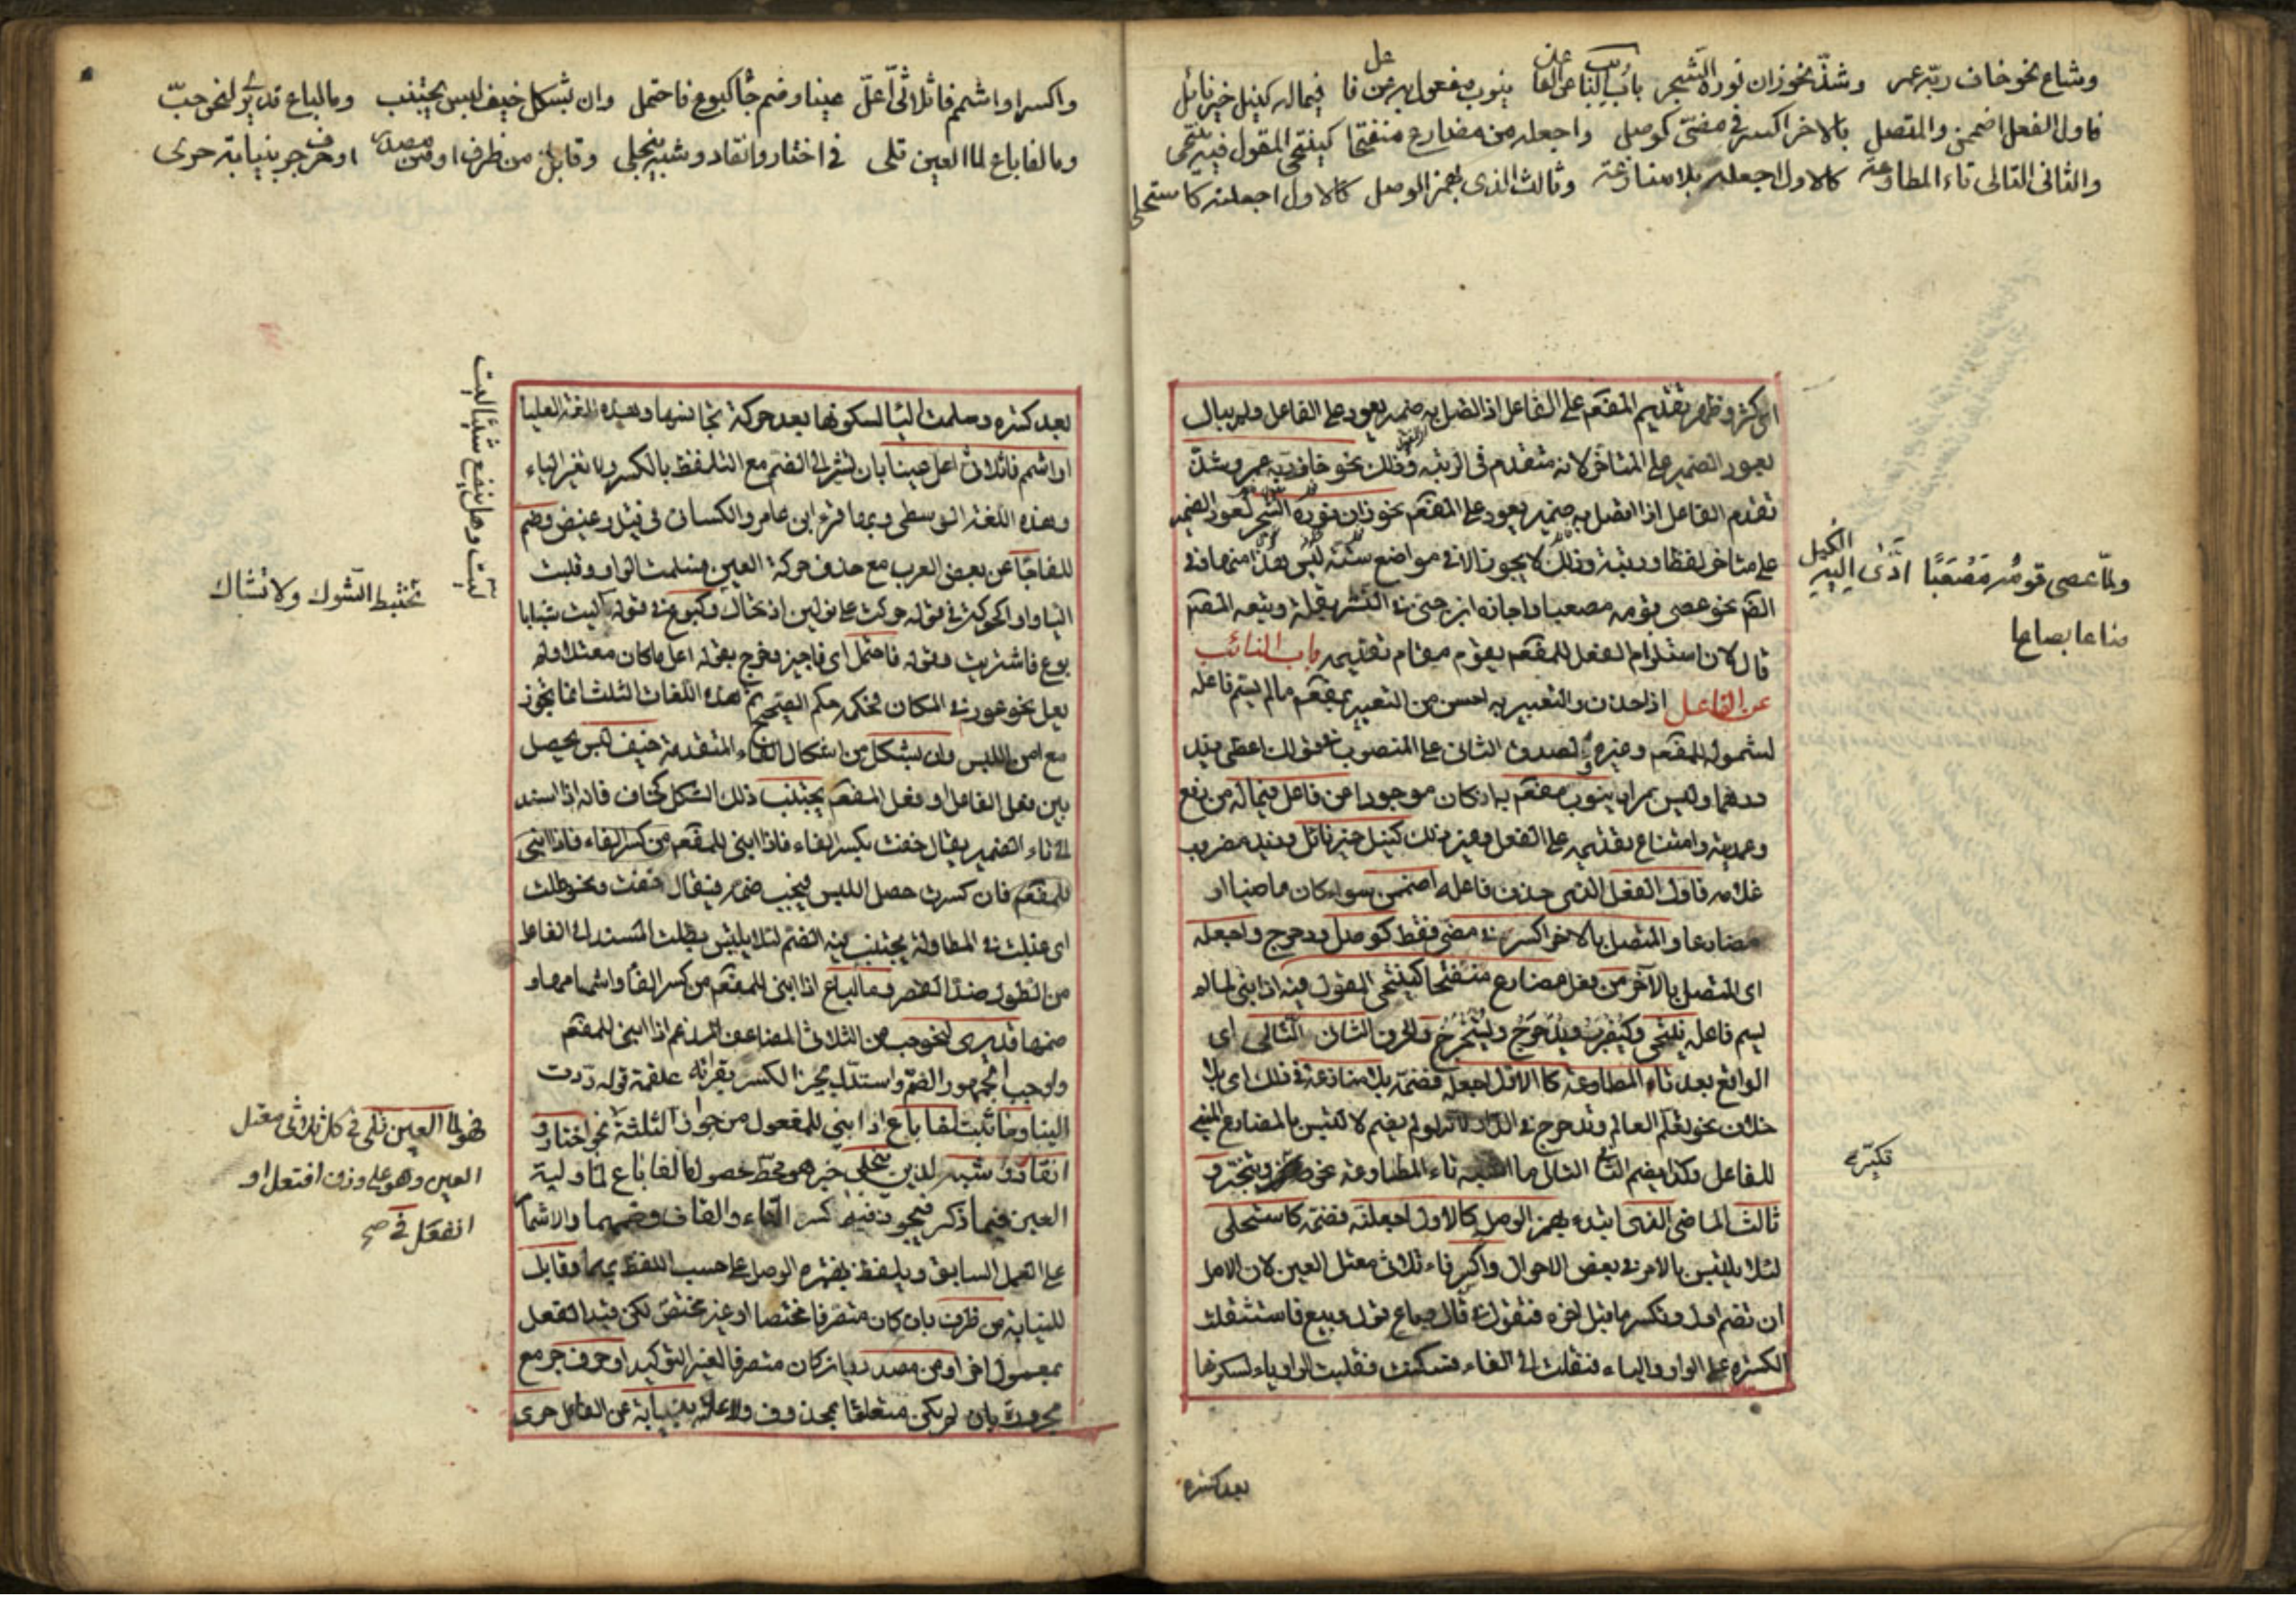 وشاع نحو خاف ربّه عمر وشذّ نحو زان نوره الشجر باب النائب عن الفاعل ينوب مفعول به عن فا فيما له كنيل خير نائل
فاول الفعل اضممن والمتصل بالاخر اكسر في مضيّ كوصل واجعله من مضارع منفتحا كينتحي المقول فيه ينتحى
والثاني التالي تاء المطاوعة كالاول اجعله بلا منازعة وثالث الذي بهمز الوصل كالاول اجعلنه كاستحلي
اي كثر وظهر تقديم المفعم على الفاعل اذا اتصل به ضمير يعود على الفاعل ولم يبال
بعود الضمير على المتاخر لانه متقدم في الرتبه وذلك نحو خاف ربه عمر وشذّ
تقدم الفاعل اذا اتصل به ضمير يعود على المفعم نحو زان نوره الشجر لعود الضمير
على متاخر لفظا ورتبة وذلك لا يجوز الا في مواضع ستة ليس هذا منها
نحو عصى قومه مصعبا واجازه ابن جني في النثر بقلة وتبعه المصنف
قال لان استلزام الفعل للمفعم يقوم مقام تقديمه باب النائب
عن الفاعل اذا حذف والتعبير به احسن من التعبير بمفعم مالم يسم فاعله
لشموله للمفعم وغيره ولصدق الثاني على المنصوب في قولك اعطي زيد
درهما وليس بمراد ينوب مفعم به ان كان موجودا عن فاعل فيما له من رفع
وعمدية وامتناع تقديمه على الفعل وغير ذلك كنيل خير نائل وزيد مضروب
غلامه فاول الفعل الذي حذف فاعله اضممن سواء كان ماضيا او
مضارعا والمتصل بالاخر اكسر في مضي فقط كوصل ودحرج واجعله
اي المتصل بالآخر من فعل مضارع منفتحا كينتحي المقول فيه اذا بني لما لم
يسم فاعله ينتحى وكيضرب ويدحرج ويستخرج والحرف الثاني التالي اي
الواقع بعد تاء المطاوعة كالاول اجعله فضمه بلا منازعة في ذلك اي بلا
خلاف نحو تعلم العلم وتدحرج في الدار لانه لو لم يضم لالتبس بالمضارع المبني
للفاعل وكذا يضم الثاني التالي ما اشبه تاء المطاوعة نحو تكبر وتبختر و
ثالث الماضي الذي ابتدء بهمز الوصل كالاول اجعلنه فضمه كاستحلي
لئلا يلتبس بالامر في بعض الاحوال واكسر فاء ثلاثي معتل العين لان الاصل
ان تضم اوله وتكسر ما قبل اخره فتقول في قال وباع قول وبيع فاستثقلت
الكسرة على الواو والياء فنقلت الى الفاء فسكنت فقلبت الواو ياء لسكونها
ولمّا عصى قومُه مُصْعَبًا ادّى اليه الكيل
صاعا بصاعا
تكبّر
بعد كسرة
واكسر او اشمم فا ثلاثيّ اعلّ عينا وضم جا كبوع فاحتمل وان بشكل خيف لبس يجتنب وما لباع قد يُرى لنحو حبّ
وما لفا باع لما العين تلي في اختار وانقاد وشبه ينجلي وقابل من ظرف او من مصدر او حرف جر بنيابة حرى
بعد كسرة وسلمت اليا لسكونها بعد حركة تجانسها وهذه اللغة العليا
او اشمم فا ثلاثي اعل عينا بان تشير الى الضم مع التلفظ بالكسر ولا تغير الياء
وهذه اللغة الوسطى وبها قرء ابن عامر والكسائي في قيل وغيض وضم
للفا جا عن بعض العرب مع حذف حركة العين فسلمت الواو وقلبت
الياء واوا كحوكت في قوله حوكت على نولين اذ تحاك وكبوع في قوله ليت شبابا
بوع فاشتريت وقوله فاحتمل اي فاجيز وخرج بقوله اعل ما كان معتلا ولم
يعل نحو عور في المكان فحكمه حكم الصحيح ثم هذه اللغات الثلث انما تجوز
مع امن اللبس وان بشكل من اشكال الفاء المتقدمة خيف لبس يحصل
بين فعل الفاعل او فعل المفعم يجتنب ذلك الشكل كخاف فانه اذا اسند
الى تاء الضمير يقال خفت بكسر الفاء فاذا بني
للمفعم فان كسرت حصل اللبس فيجب ضمه فيقال خفت ونحو طلت
اي غلبت في المطاولة يجتنب فيه الضم لئلا يلتبس بطلت المسند الى الفاعل
من الطول ضد القصر وما لباع اذا بني للمفعم من كسر الفا واشمامها و
ضمها قد يرى لنحو حب من الثلاثي المضاعف المدغم اذا بني للمفعم
واوجب الجمهور الضم واستدل مجيز الكسر بقراءة علقمة قوله ردت
الينا وما ثبت لفا باع اذا بني للمفعول من جواز الثلثة نحو اختار و
انقاد وشبه لذين ينجلي خبر هو محط حصول ما لفا باع لما وليه
العين فيما ذكر فيجوز فيهما كسر التاء والقاف وضمهما والاشمام
على العمل السابق ويلفظ بهمزة الوصل على حسب اللفظ بهما وقابل
للنيابة من ظرف بان كان متصرفا مختصا او غير مختص لكن قيد الفعل
بمعمول اخر او من مصدر بان كان متصرفا لغير التوكيد او حرف جر مع
مجروره بان لم يكن متعلقا بمحذوف ولا علة بنيابة عن الفاعل حرى
ليت وهل ينفع شيئا ليت
تختبط الشوك ولا تشاك
فهو لما العين تلي في كل ثلاثي معتل
العين وهو على وزن افتعل او
انفعل في صح